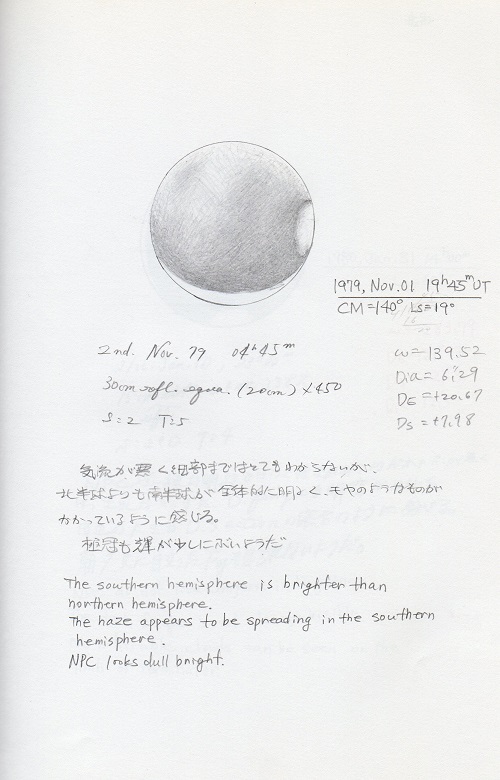 1979, Nov. 01 19h45m UT
CM=140° Ls=19°
2nd. Nov. 79 04h45m
ω=139.52
30cm refl. (20cm) ×450
Dia=6."29
DE=+20.67
S=2 T=5
Ds=+7.98
気流が悪く細部まではとてもわからないが、
北半球よりも南半球が全体的に明るく、モヤのようなものが
かかっているように感じる。
極冠も輝が少しにぶいようだ
The southern hemisphere is brighter than
northern hemisphere.
The haze appears to be spreading in the southern
hemisphere.
NPC looks dull bright.